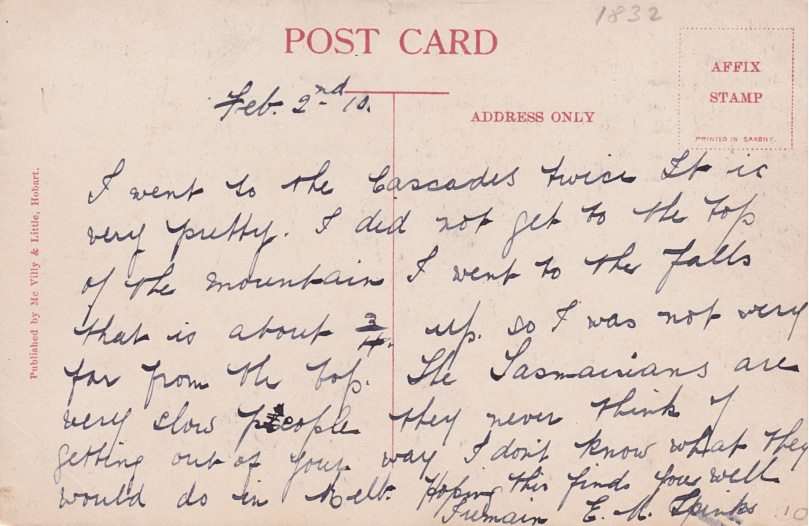 1832
POST CARD
AFFIX
STAMP
PRINTED IN SAXONY.
ADDRESS ONLY
Published by Mc Villy & Little, Hobart.
Feb. 2nd 10.
I went to the Cascades twice It is
very pretty. I did not get to the top
of the mountain I went to the falls
that is about 3/4. up. so I was not very
far from the top. The Tasmainians are
very slow people they never think of
getting out of your way I don't know what they
would do in Melb. Hoping this finds you well
I remain E. M. Spinks
10